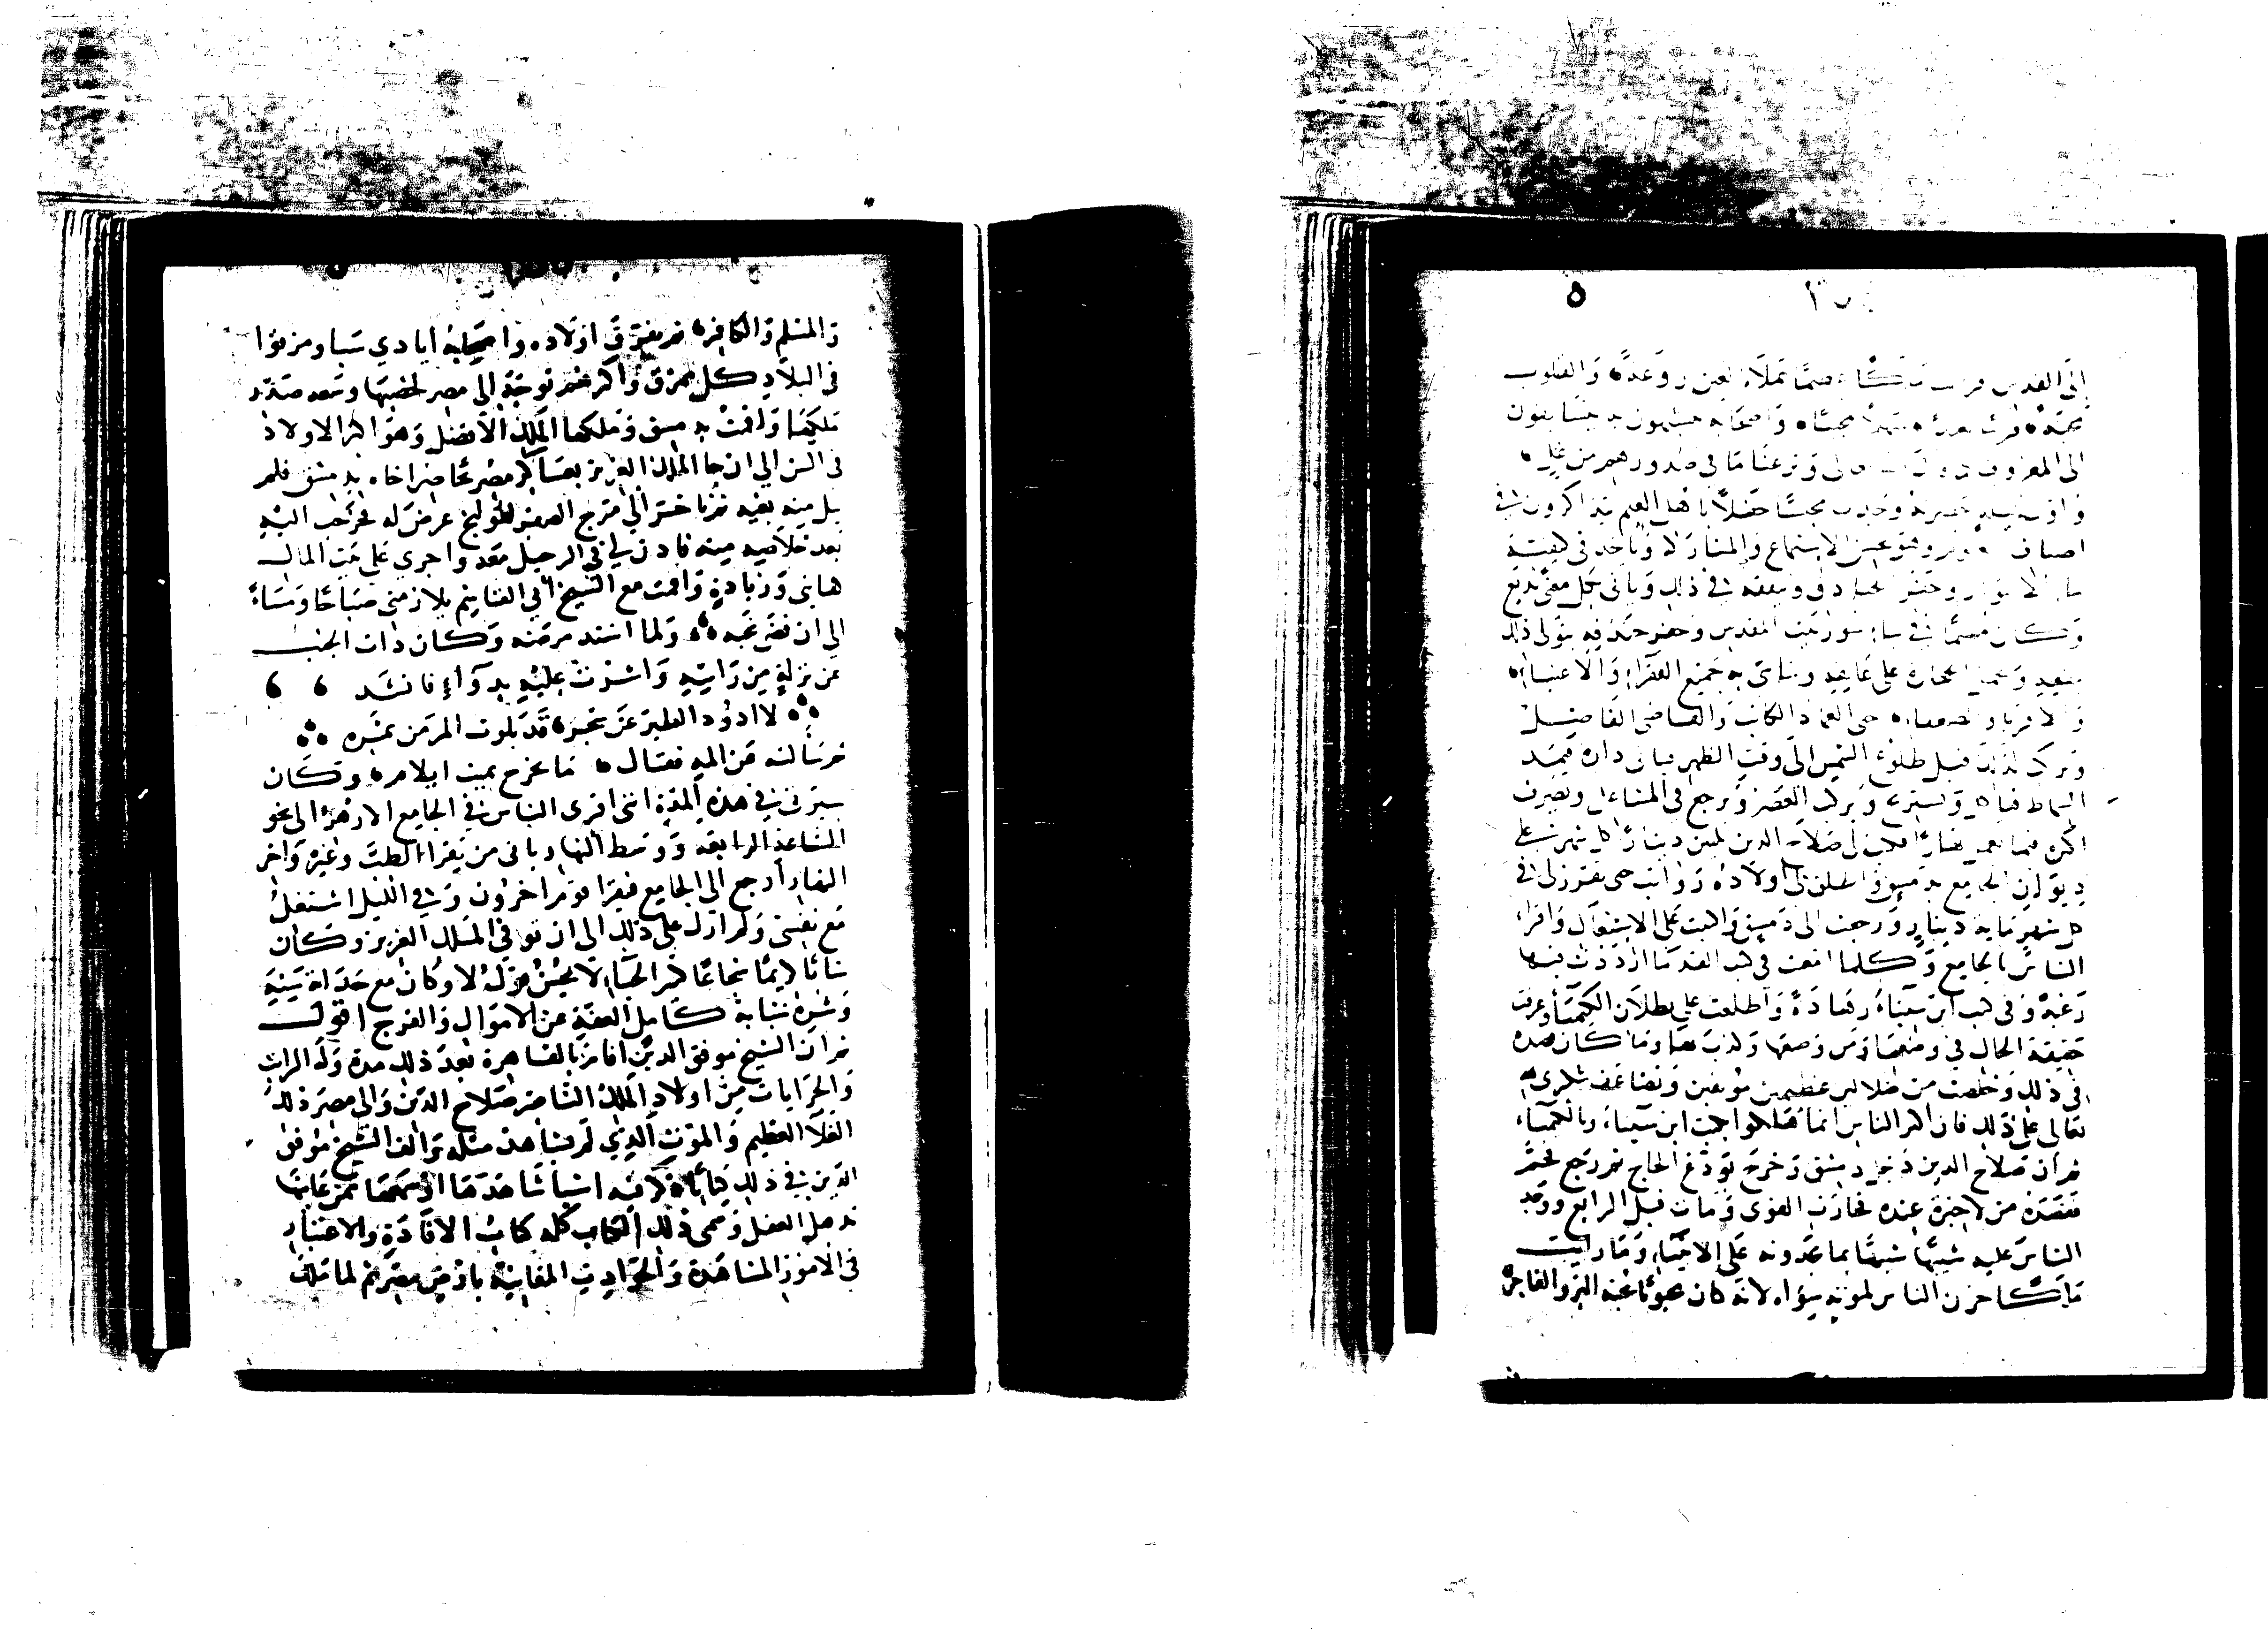 ٥
الى القدس فرايت ملكا عظيما تملاء العين روعة والقلوب
محبة قريبا بعيدا سهلا محببا واصحابه متشبهون به يتسابقون
الى المعروف كما قال تعالى ونزعنا ما في صدورهم من غل
واول ليل حضرته وجدت مجلسا حفلا باهل العلم يتذاكرون في
اصناف العلوم وهو يحسن الاستماع والمشاركة وياخذ في كيفية
بناء الاسوار وحفر الخنادق ويتفقه في ذلك وياتي بكل معنى بديع
وكان مهتما في بناء سور بيت المقدس وحفر خندقه يتولى ذلك
بنفسه وينقل الحجارة على عاتقه ويتاسى به جميع الفقراء والاغنياء
والاقوياء والضعفاء حتى العماد الكاتب والقاضي الفاضل
ويركب لذلك قبل طلوع الشمس الى وقت الظهر فياتي داره فيمد
السماط فياكل ويستريح ويركب العصر ويرجع في المشاعل ويصرف
اكثر فيما يعمل نهارا فكتب لي صلاح الدين بثلثين دينارا كل شهر على
ديوان الجامع بدمشق واطلق لي اولاده رواتب حتى تقرر لي في
كل شهر ماية دينار ورجعت الى دمشق واكببت على الاشتغال واقراء
الناس بالجامع وكلما امعنت في كتب القدما ازددت فيها
رغبة وفي كتب ابن سيناء زهادة واطلعت على بطلان الكيمياء وعرفت
حقيقة الحال في وضعها ومن وضعها وكذب بها وما كان قصده
في ذلك وخلصت من ضلالين عظيمين موبقين وتضاعف شكري لله
تعالى على ذلك فان اكثر الناس انما هلكوا بكتب ابن سيناء وبالكيمياء
ثم ان صلاح الدين دخل دمشق وخرج يودع الحاج ثم رجع فحم
ففصده من لا خبرة عنده فخارت القوى ومات قبل الرابع ووجد
الناس عليه شبيها شبيها بما يجدونه على الانبياء وما رايت
ملكا حزن الناس لموته سواه لانه كان محبوبا يحبه البر والفاجر
والمسلم والكافر ثم تفرق اولاده واصحابه ايادي سبا ومزقوا
في البلاد كل ممزق واكثرهم توجه الى مصر لخصبها وسعة صدر
ملكها واقمت بدمشق وملكها الملك الافضل وهو اكبر الاولاد
في السن الى ان جا الملك العزيز بعساكر مصر يحاصر اخاه بدمشق فلم
ينل منه بغية ثم تاخر الى مرج الصفر لقولنج عرض له فخرجت اليه
بعد خلاصه منه فاذن لي في الرحيل معه واجرى علي من بيت المال
كفايتي وزيادة واقمت مع الشيخ ابي القاسم يلازمني صباحا ومساءً
الى ان قضى نحبه ولما اشتد مرضه وكان ذات الجنب
عن نزلة من راسه واشرت عليه بدواء فانشد
لا اذود الطير عن شجر قد بلوت المر من ثمره
ثم سالته عن المه فقال ما لجرح بميت ايلام وكان
سيرتي في هذه المدة انني اقري الناس في الجامع الازهر الى نحو
الساعة الرابعة ووسط النهار ياتي من يقراء الطب وغيره واخر
النهار ارجع الى الجامع فيقرا قوم اخرون وفي الليل اشتغل
مع نفسي ولم ازل على ذلك الى ان توفي الملك العزيز وكان
شابا كريما شجاعا كثير الحياء لا يحسن قول لا وكان مع حداثة سنه
وشره شبابه كامل العفة عن الاموال والفرج اقول
ثم ان الشيخ موفق الدين اقام بالقاهرة بعد ذلك مدة وله الراتب
والجرايات من اولاد الملك الناصر صلاح الدين واتى مصر ذلك
الغلا العظيم والموت الذي لم يشاهد مثله والف الشيخ موفق
الدين في ذلك كتابا ذكر فيه اشيا شاهدها او سمعها ممن عاينها
تذهل العقل وسمى ذلك الكتاب كله كتاب الافادة والاعتبار
في الامور المشاهدة والحوادث المعاينة بارض مصر ثم لما ملك